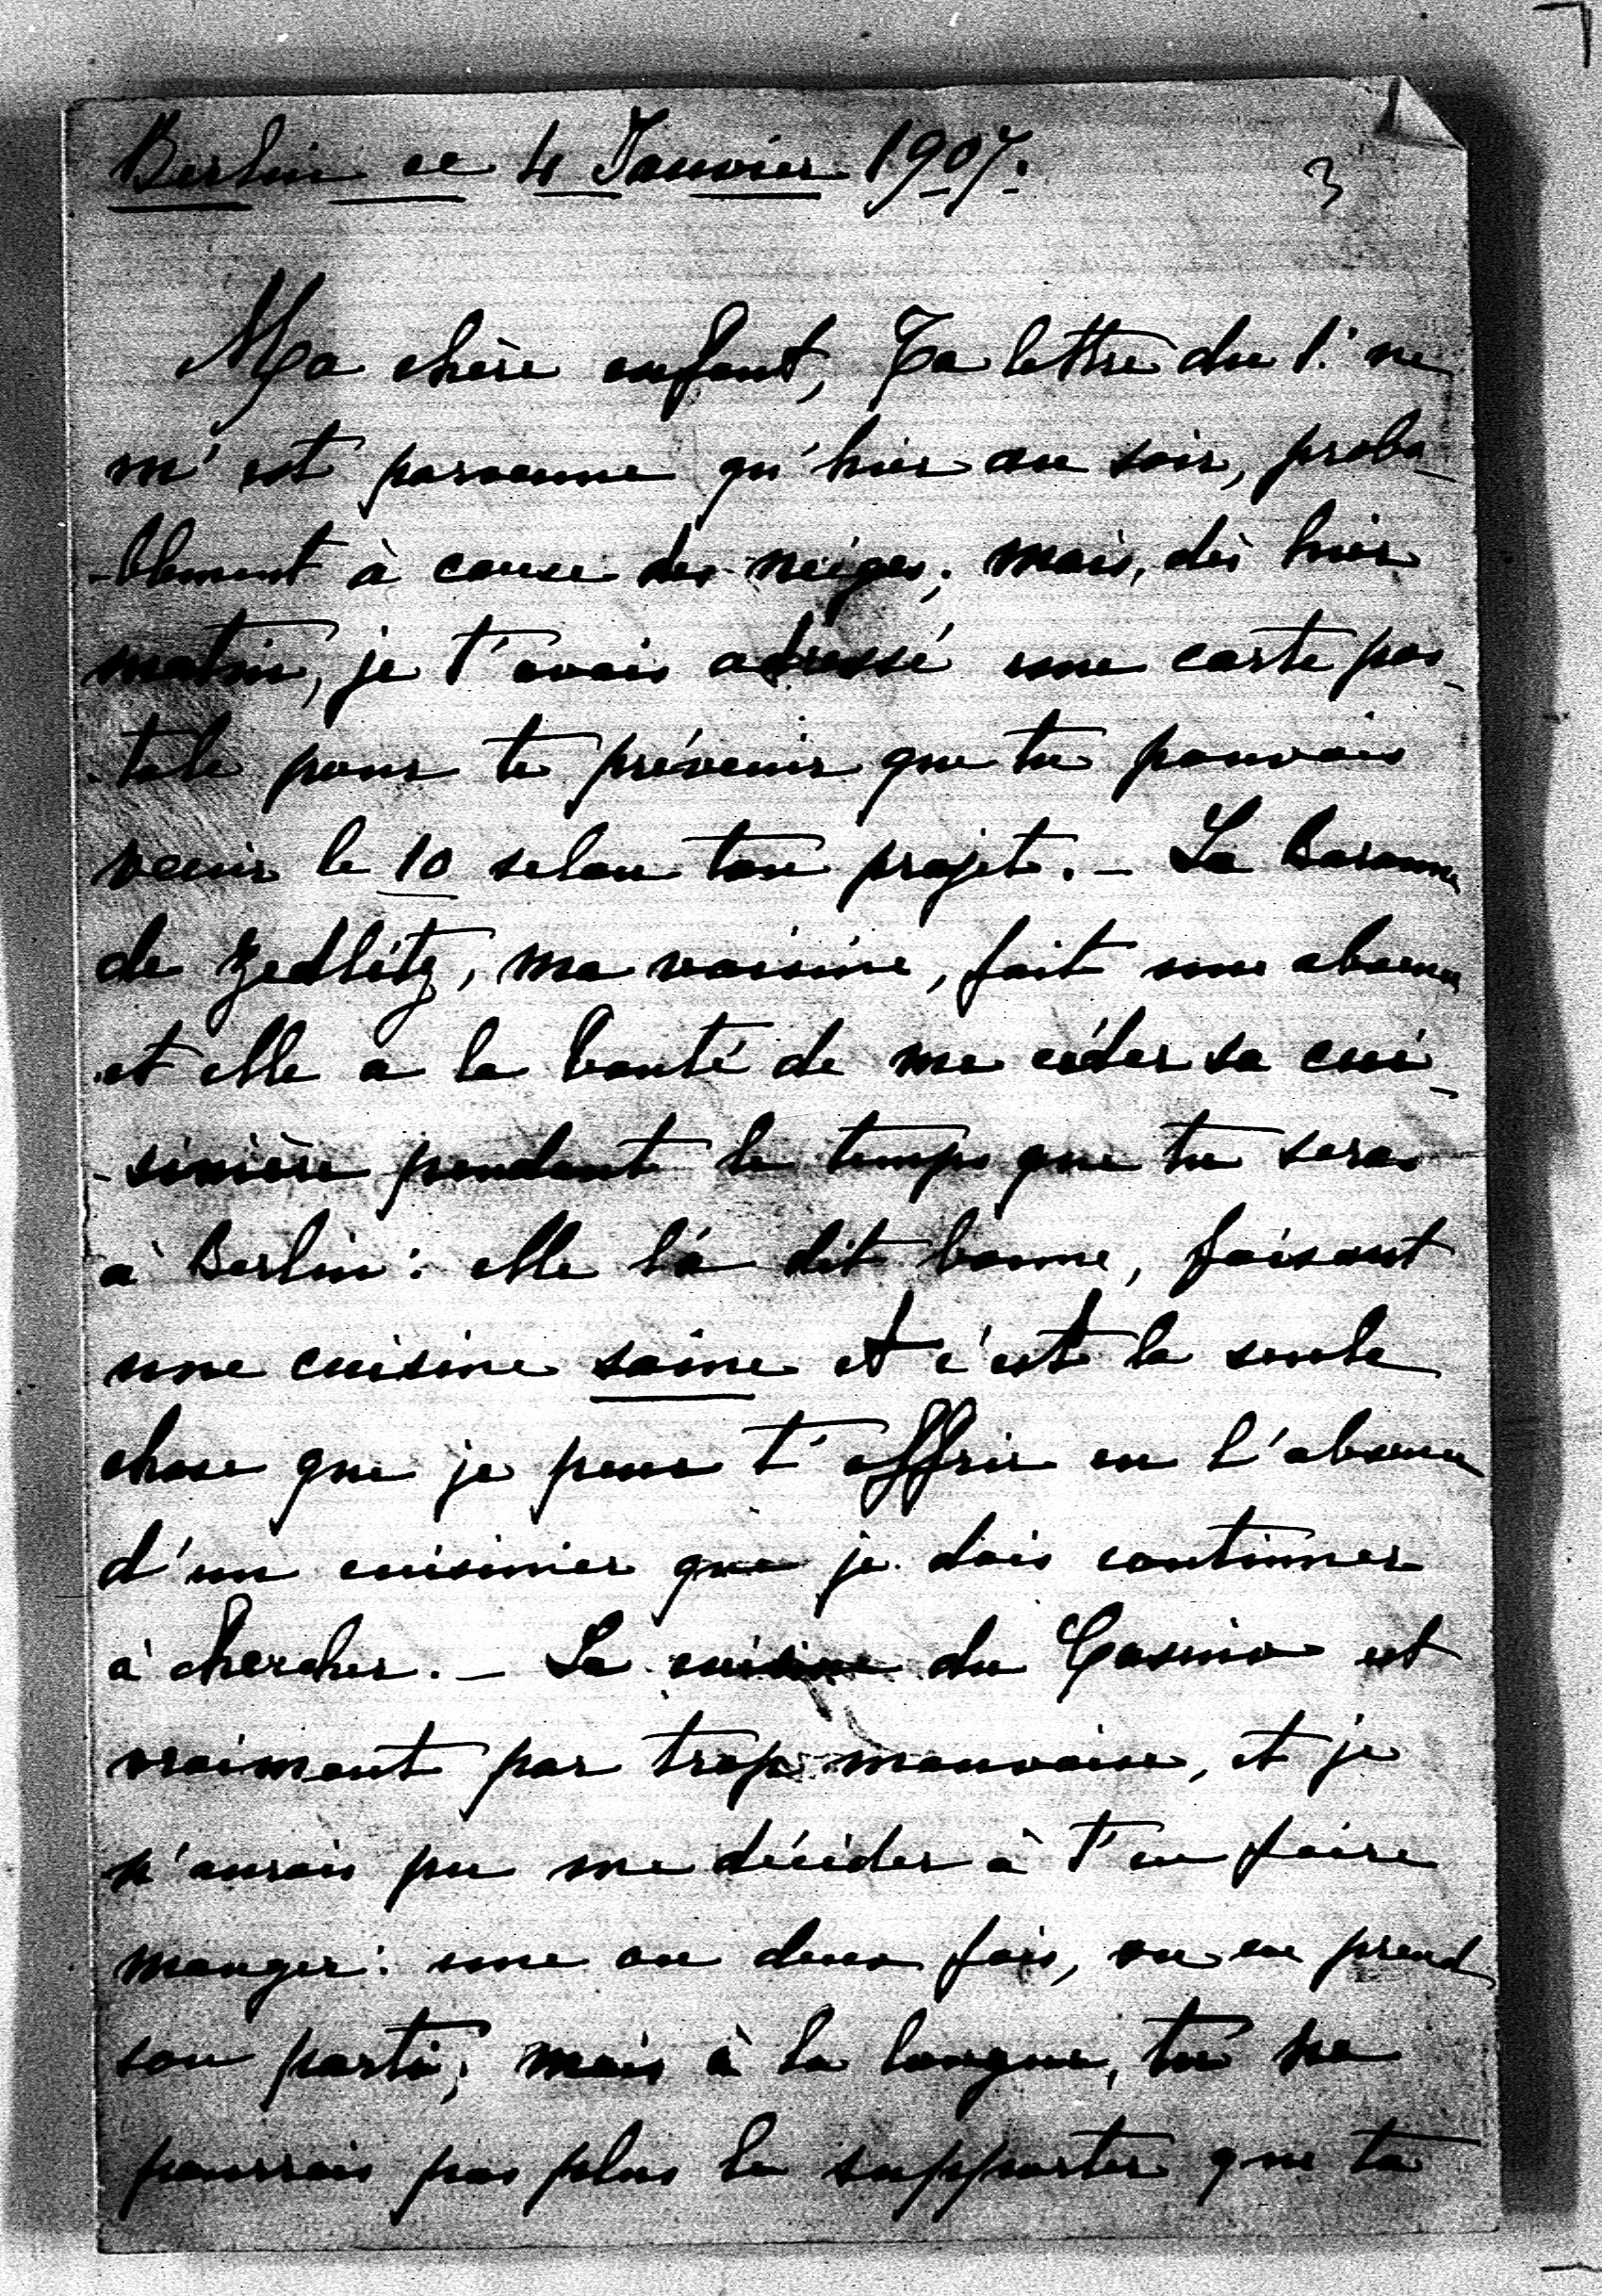 Berlin ce 4 Janvier 1907.
3
Ma chère enfant, Ta lettre du 1. ne
m'est parvenue qu'hier au soir, proba-
-blement à cause des neiges; mais, dès hier
matin, je t'avais adressé une carte pos-
-tale pour te prévenir que tu pouvais
venir le 10 selon ton projet. — La Baronne
de Zedlitz, ma voisine, fait une absence
et elle a la bonté de me céder sa cui-
-sinière pendant le temps que tu seras
à Berlin: elle la dit bonne, faisant
une cuisine saine et c'est la seule
chose que je peux t'offrir en l'absence
d'un cuisinier que je dois continuer
à chercher. — La cuisine du Casino est
vraiment par trop mauvaise, et je
n'aurais pu me décider à t'en faire
manger: une ou deux fois, on en prend
son parti; mais à la longue, tu ne
pourrais pas plus la supporter que ta